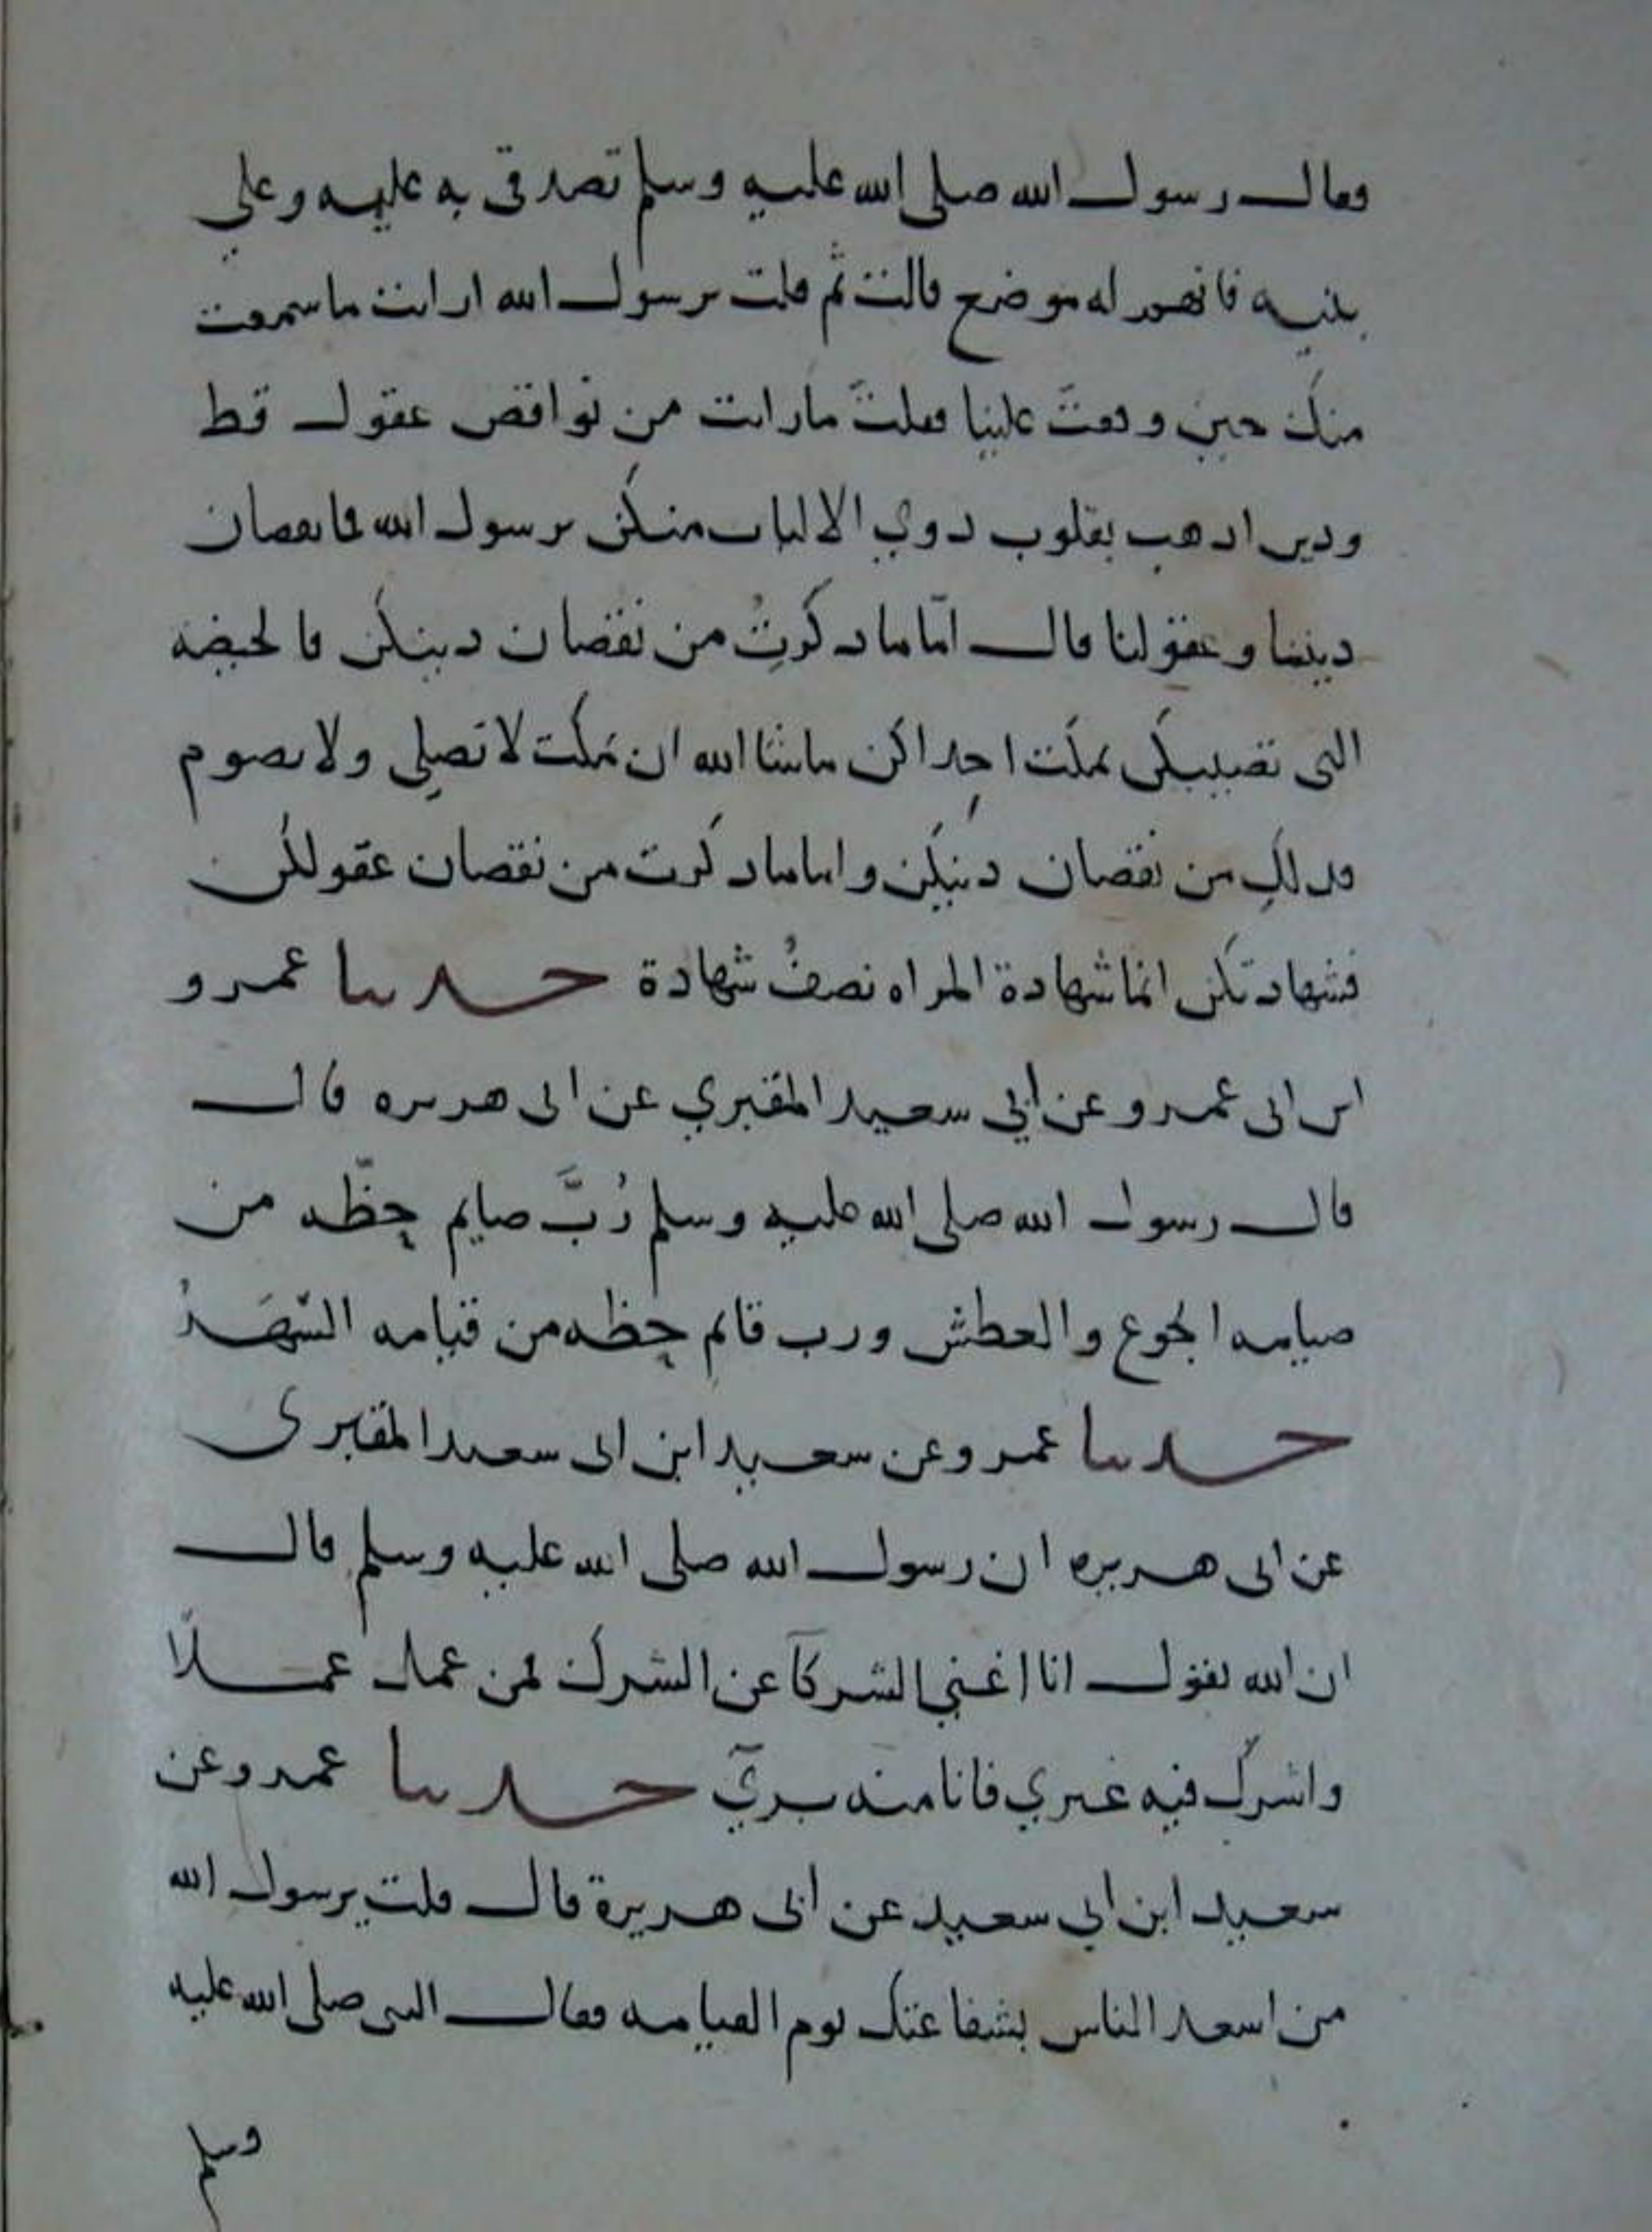 فقال رسول الله صلى الله عليه وسلم تصدقي به عليه وعلي
بنيه فانهم له موضع قالت ثم قلت يرسول الله ارايت ما سمعت
منك حين وقفت علينا فقلت ما رايت من نواقص عقول قط
ودين اذهب بقلوب ذوي الالباب منكن يرسول الله فما نقصان
ديننا وعقولنا قال امّا ما ذكرتُ من نقصان دينكن فالحيضه
التي تصيبكن تمكث احداكن ما شا الله ان تمكث لا تصلي ولا تصوم
فذلك من نقصان دينكن واما ما ذكرت من نقصان عقولكن
فشهادتكن انما شهادة المراه نصفُ شهادة حدثنا عمرو
ابن ابي عمرو عن ابي سعيد المقبري عن ابي هريره قال
قال رسول الله صلى الله عليه وسلم رُبَّ صايم حظّه من
صيامه الجوع والعطش ورب قائم حظه من قيامه السَّهَرُ
حدثنا عمرو عن سعيد ابن ابي سعيد المقبرى
عن ابي هريره ان رسول الله صلى الله عليه وسلم قال
ان الله يقول انا اغني الشركآ عن الشرك فمن عمل عملًا
واشرك فيه غيري فانا منه بريٓ حدثنا عمرو عن
سعيد ابن ابي سعيد عن ابي هريرة قال قلت يرسول الله
من اسعد الناس بشفاعتك يوم القيامه فقال النبى صلى الله عليه
وسلم